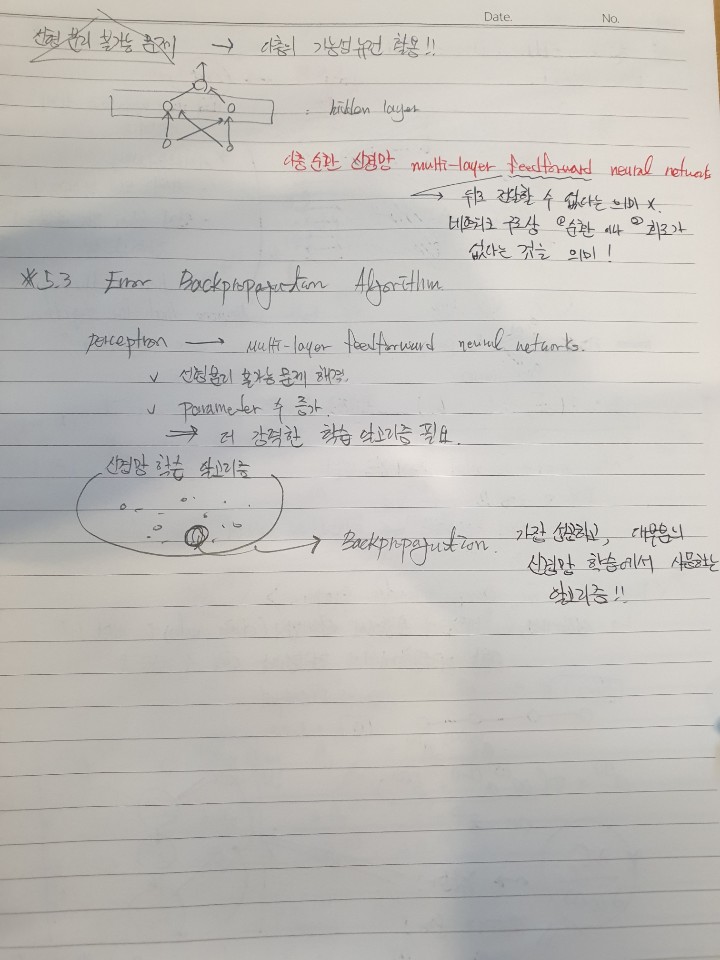 Date. No.
선형 분리 불가능 문제 → 다층의 기능성 뉴런 활용!!
: hidden layer
다층 순환 신경망 multi-layer feedforward neural network
→ 뒤로 전달할 수 없다는 의미 x.
네트워크 구조상 ① 순환 이나 ② 회로가
없다는 것을 의미!
* 5.3 Error Backpropagation Algorithm
perceptron → multi-layer feedforward neural networks.
v 선형분리 불가능 문제 해결.
v parameter 수 증가.
⇒ 더 강력한 학습 알고리즘 필요.
신경망 학습 알고리즘
→ Backpropagation. 가장 성공하고, 대부분의
신경망 학습에서 사용하는
알고리즘!!